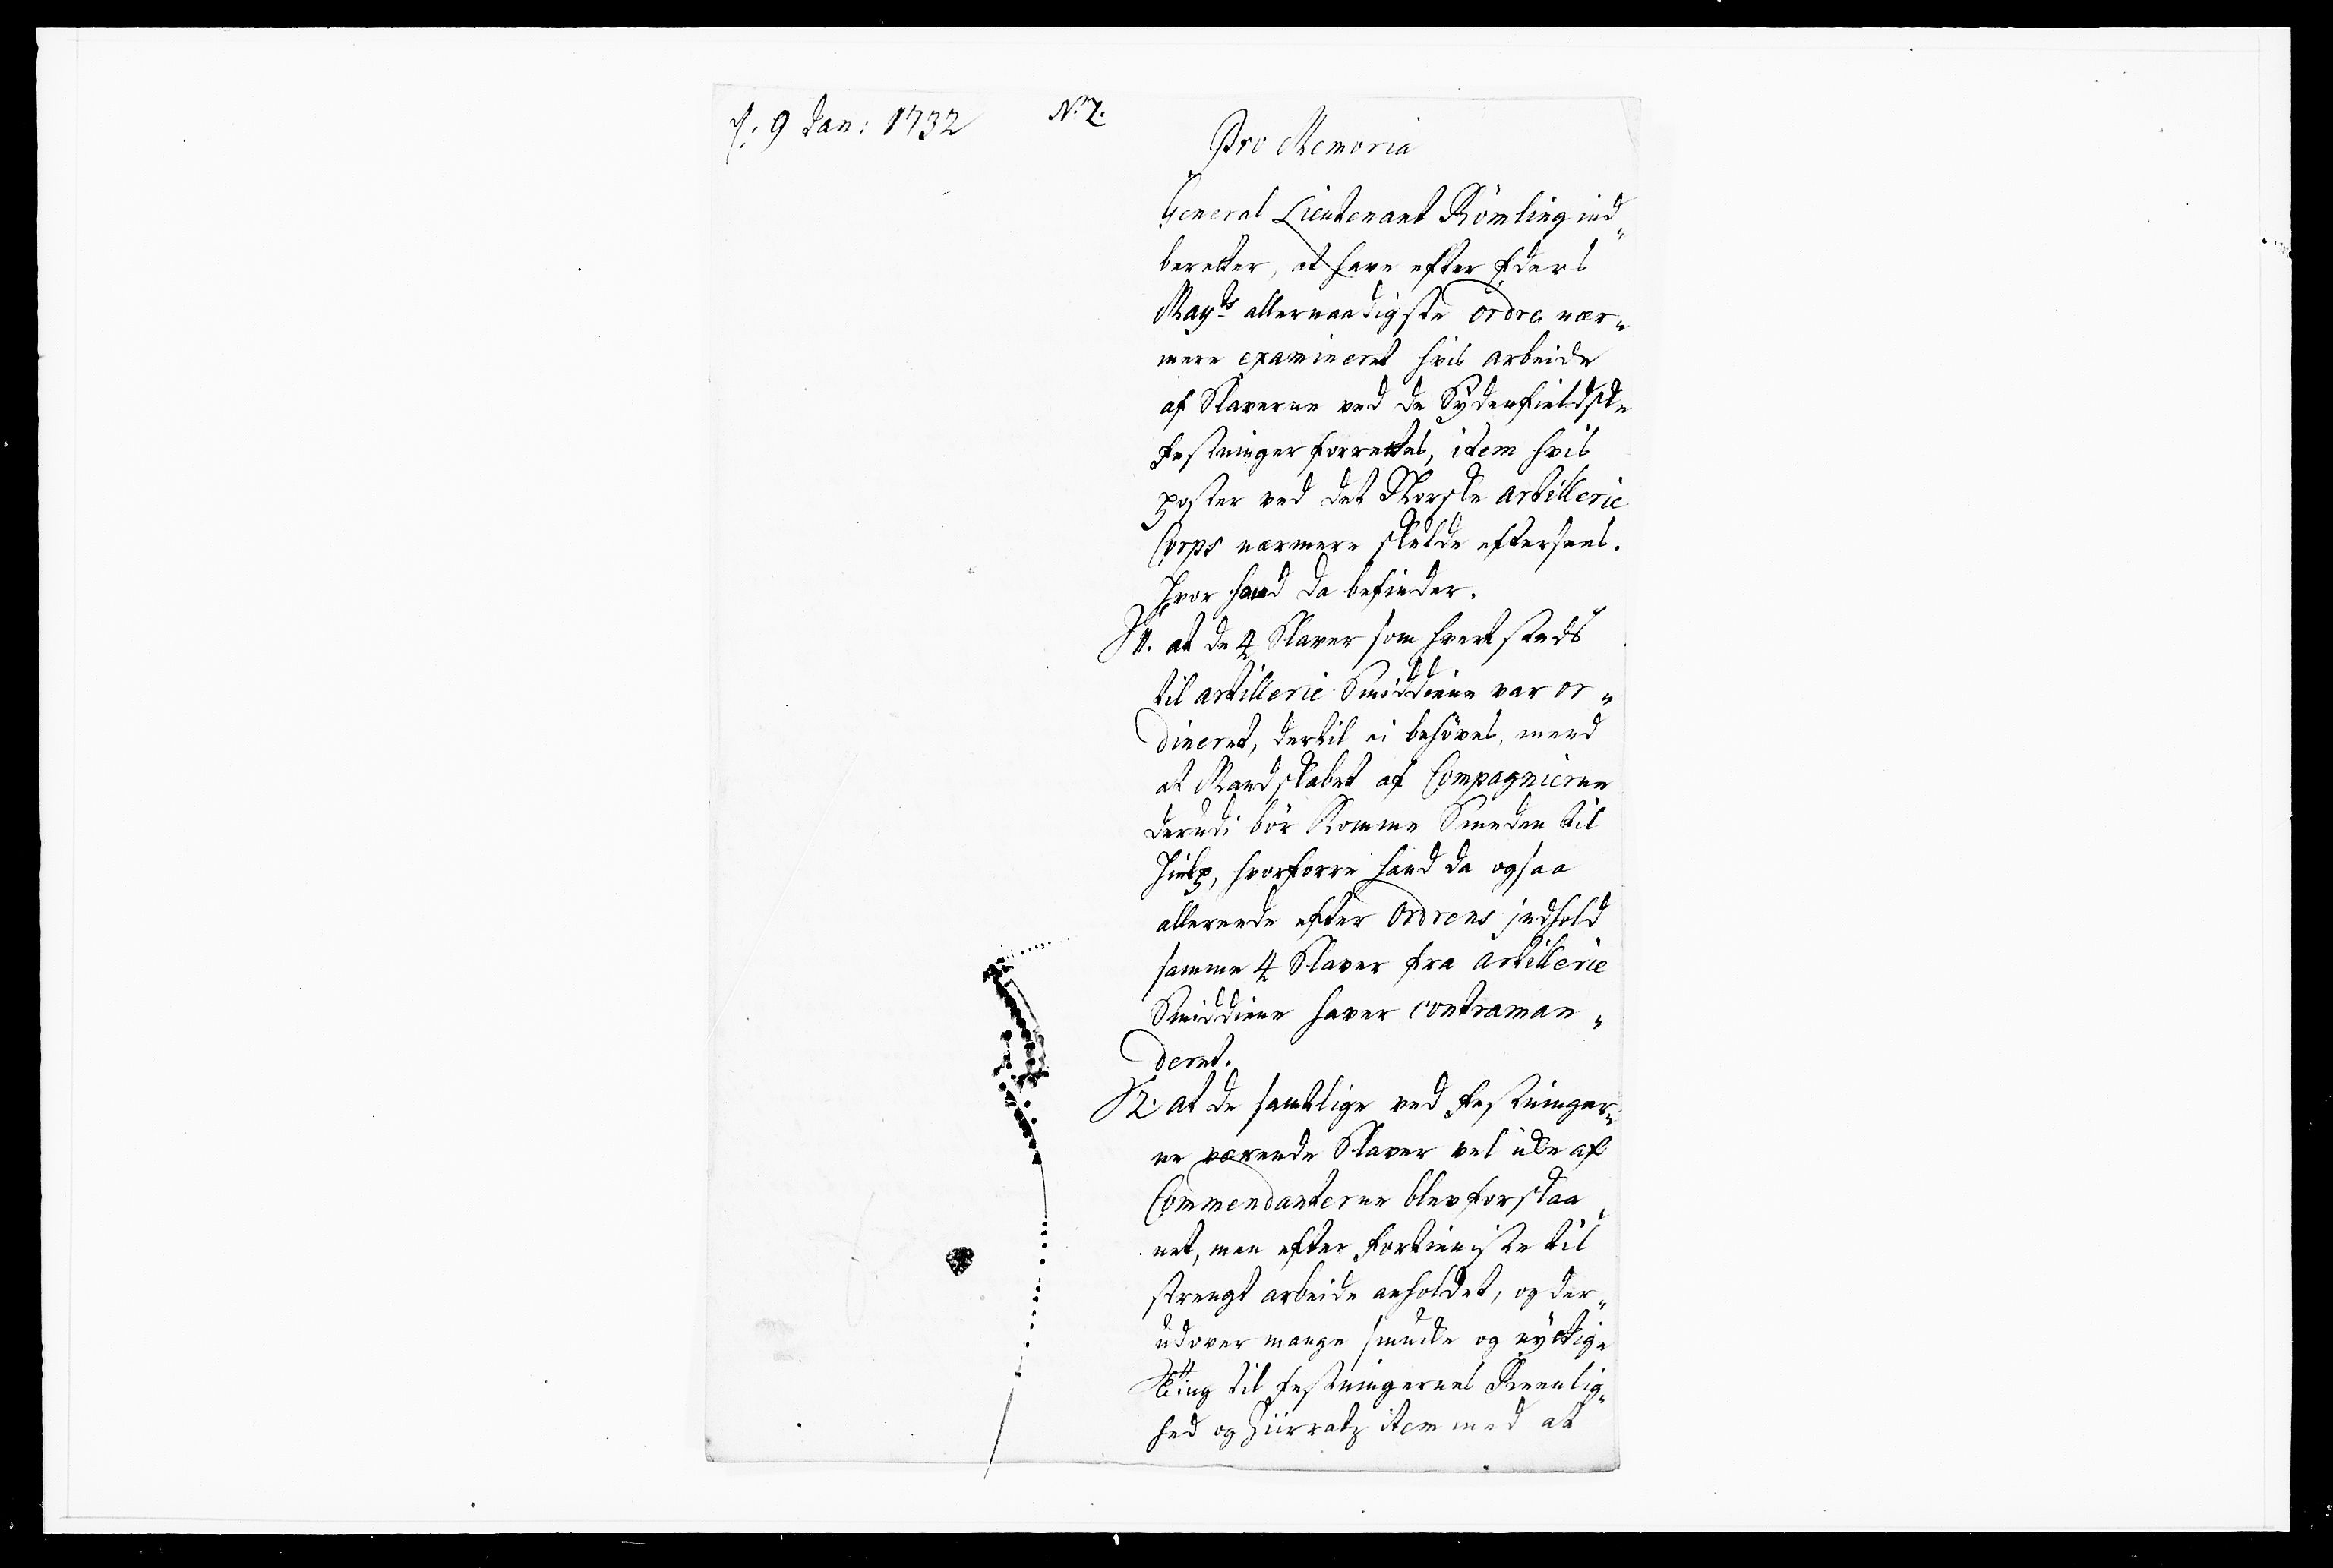 d: 9 Jan: 1732
No 2.
Pro Memoria
General Lieutenant Römling ind„
beretter, at have efter Eders
Mayts allernaadigste ordre nær„
mere examineret hvis arbeide
af Slaverne ved de Sydenfieldske
Festninger forrettes, item hvis
poster ved det Norske artillerie
Corps nærmere skulde eftersees.
Hvor hand da befinder.
1. at de 4 Slaver som hvert steds
til artillerie Smiddiene var or„
dineret, dertil ei behöves, mend
at Mandskabet af Compagnierne
derudi bör komme Smeden til
Hielp, hvorforre hand da ogsaa
allerede efter Ordrens indhold
samme 4 Slaver fra artillerie
Smiddiene haver contraman„
deret.
2. at de samtlige ved Festninger„
ne værende Slaver vel icke af
Commendanterne blev forskaa„
net, men efter fortieniste til
strengt arbeide anholdet, og der„
udover mange smucke og nyttige
ting til Festningernes Reenlig„
hed og Ziirratz item med at